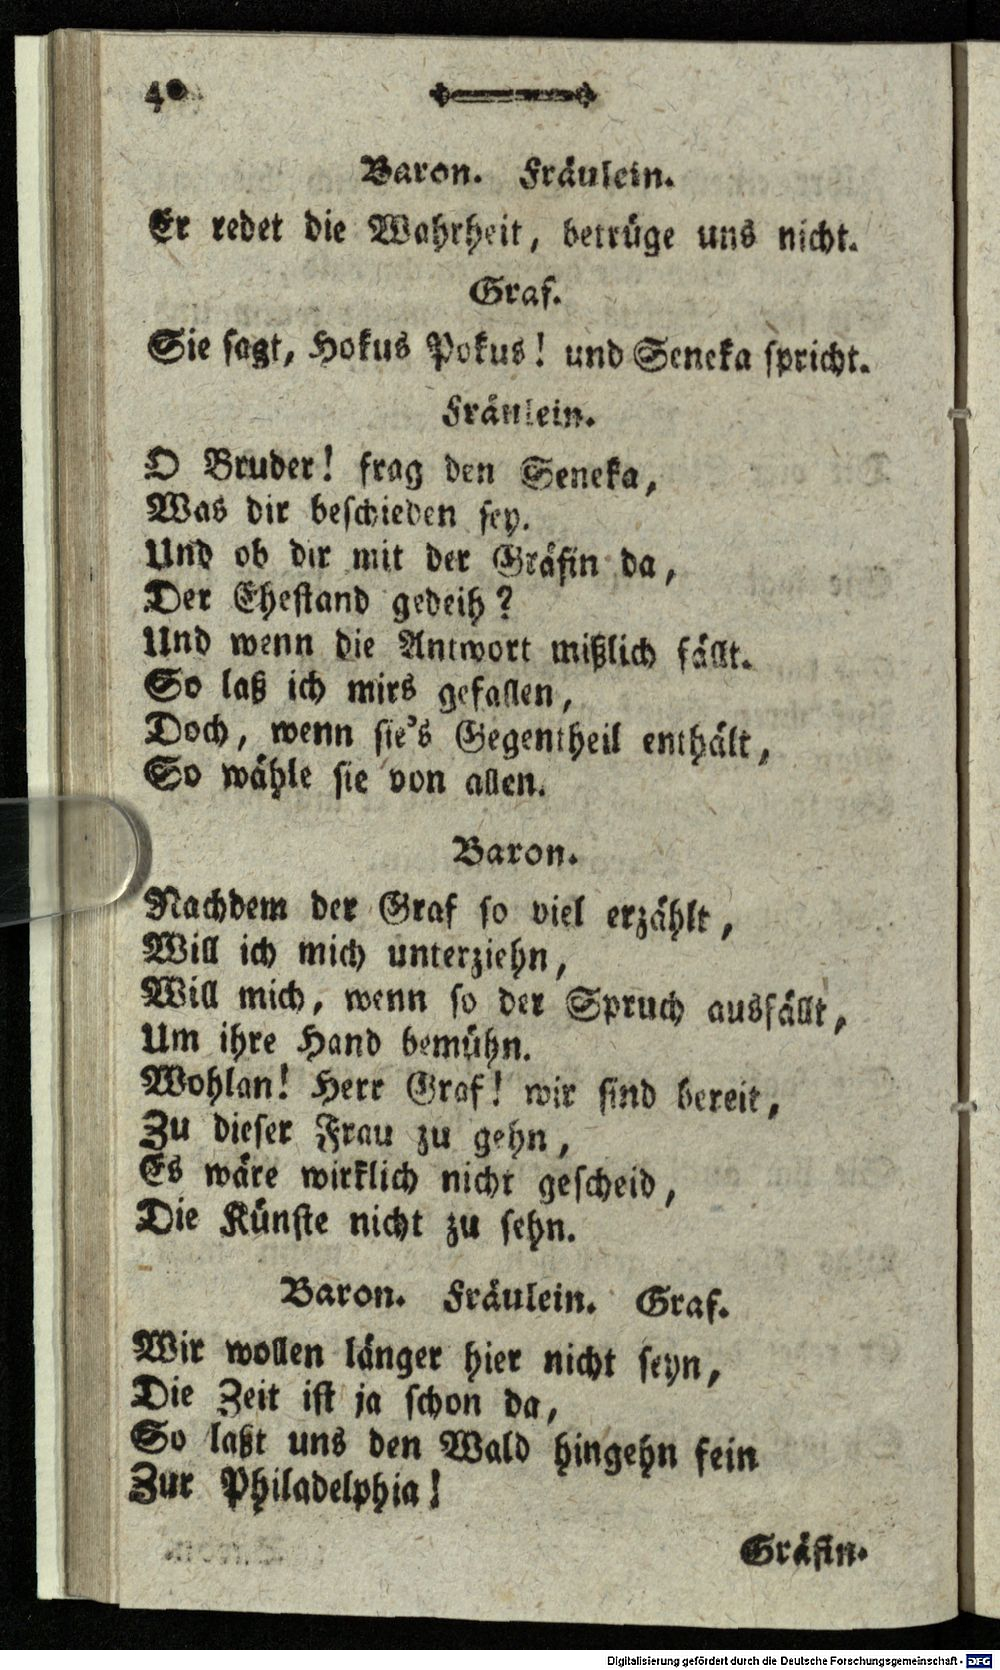 40
Baron. Fräulein.
Er redet die Wahrheit, betrüge uns nicht.
Graf.
Sie sagt, Hokus Pokus! und Seneka spricht.
Fräulein.
O Bruder! frag den Seneka,
Was dir beschieden sey.
Und ob dir mit der Gräfin da,
Der Ehestand gedeih?
Und wenn die Antwort mißlich fällt.
So laß ich mirs gefallen,
Doch, wenn sie's Gegentheil enthält,
So wähle sie von allen.
Baron.
Nachdem der Graf so viel erzählt,
Will ich mich unterziehn,
Will mich, wenn so der Spruch ausfällt,
Um ihre Hand bemühn.
Wohlan! Herr Graf! wir sind bereit,
Zu dieser Frau zu gehn,
Es wäre wirklich nicht gescheid,
Die Künste nicht zu sehn.
Baron. Fräulein. Graf.
Wir wollen länger hier nicht seyn,
Die Zeit ist ja schon da,
So laßt uns den Wald hingehn fein
Zur Philadelphia!
Gräfin.
Digitalisierung gefördert durch die Deutsche Forschungsgemeinschaft - DFG